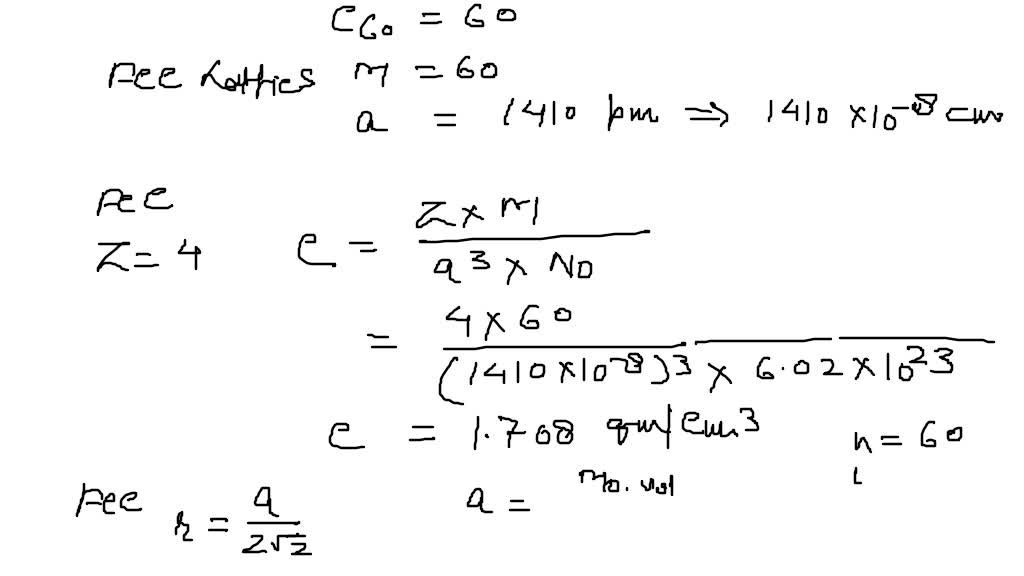 C60 = 60
FCC Lattics M = 60
a = 1410 pm ⇒ 1410 × 10⁻⁸ cm
FCC
Z = 4 ρ = Z × M / a³ × No
= 4 × 60 / (1410 × 10⁻⁸)³ × 6.02 × 10²³
ρ = 1.708 gm/cm³ n = 60
FCC r = a / 2√2 a =